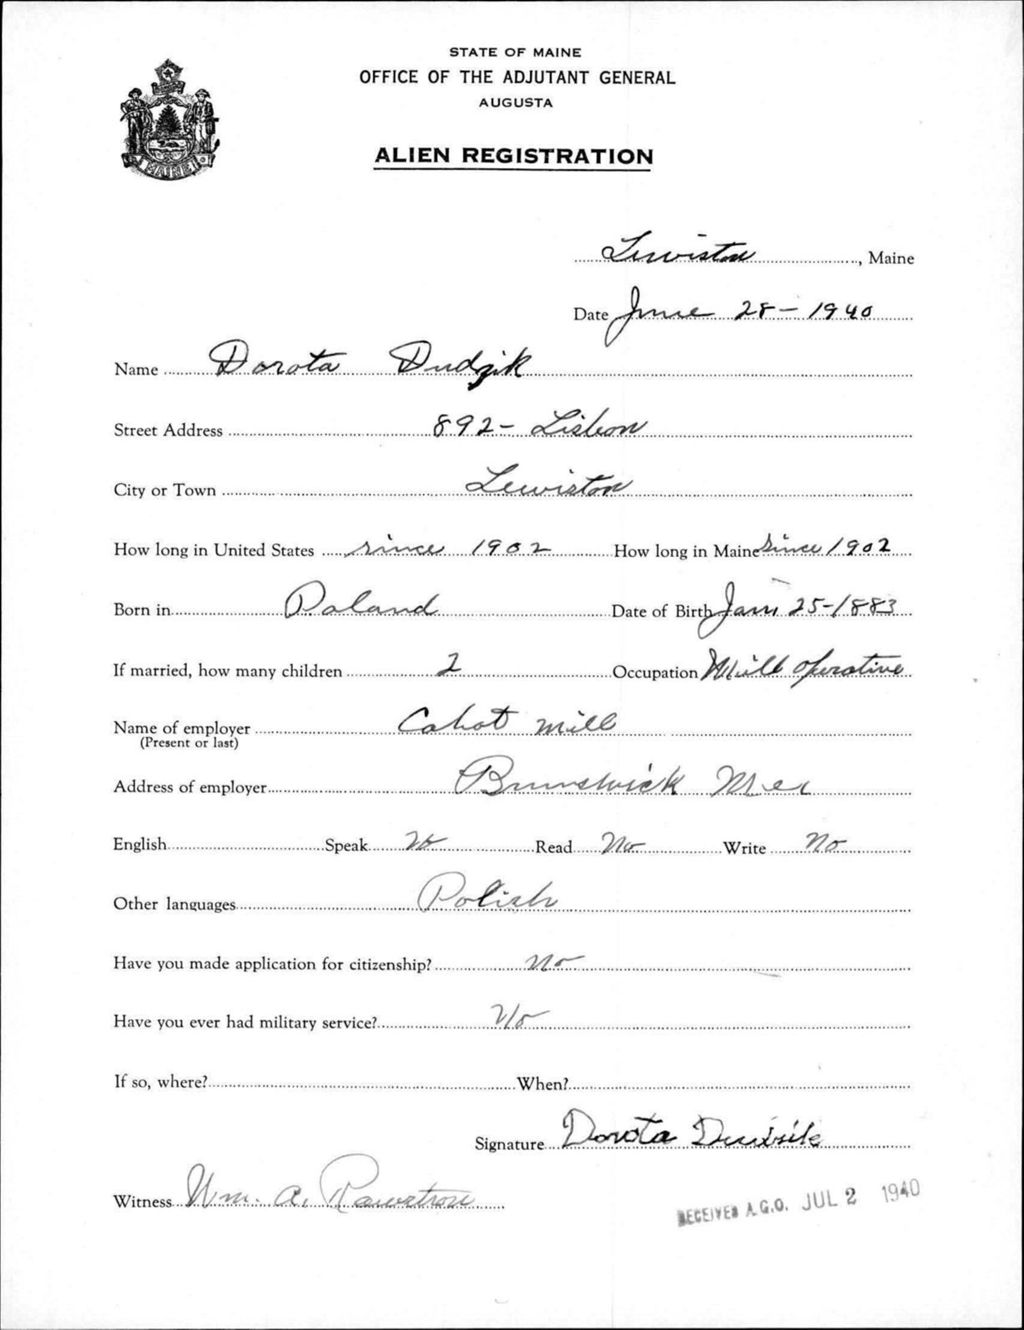 STATE OF MAINE
OFFICE OF THE ADJUTANT GENERAL
AUGUSTA
ALIEN REGISTRATION
MAINE
Lewiston, Maine
Date June 28 - 1940
Name Dorota Dudzik
Street Address 892 - Lisbon
City or Town Lewiston
How long in United States since 1902 How long in Maine since 1902
Born in Poland Date of Birth Jan 25-1883
If married, how many children 2 Occupation Mill operative
Name of employer Cabot Mill
(Present or last)
Address of employer Brunswick Me
English Speak No Read No Write No
Other languages Polish
Have you made application for citizenship? No
Have you ever had military service? No
If so, where? When?
Signature Dorota
Witness Wm. A. Rawstron
RECEIVED A.G.O. JUL 2 1940